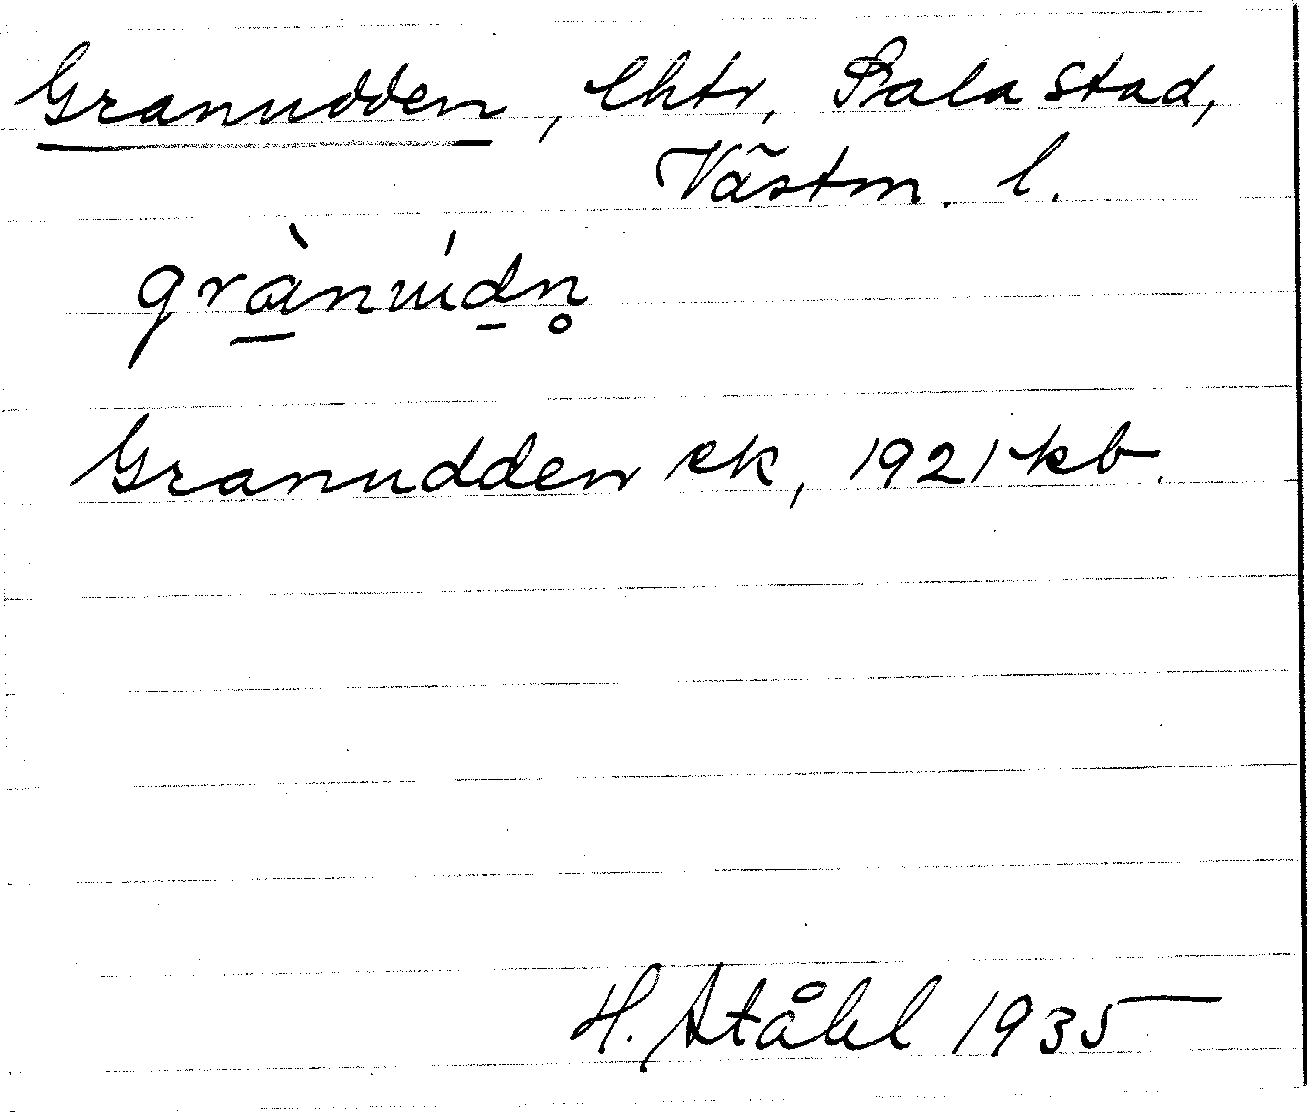 Granudden, lhtr, Sala stad,
Västm. l.
grànúdn̥
Granudden ek, 1921 kb.
H. Ståhl 1935